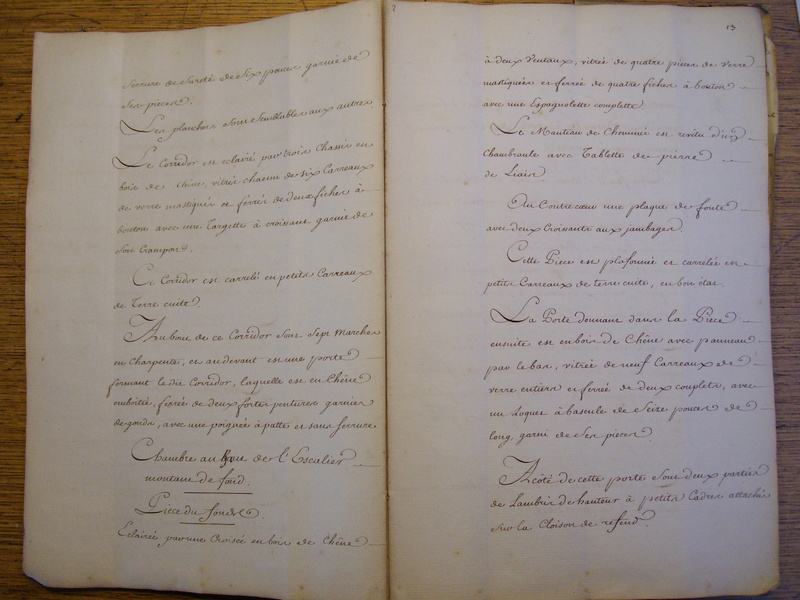 Serrure de Sureté de Six pouces garnie de
Ses pieces.
Les planchers Sont Semblables aux autres
Le Corridor est eclairé par trois Chassis en
bois de chêne, vitrés chacun de six Carreaux
de verre mastiqués et ferrés de deux fiches à
bouton avec une Targette à croissant garnie de
Son Crampon.
Ce Corridor est carrelé en petits Carreaux
de Terre cuite.
Au bout de ce Corridor Sont Sept Marches
en Charpente, et au devant est une porte
formant le dit Corridor, laquelle est en Chêne
emboitée, ferrée de deux fortes pentures garnies
de gonds, avec une poignée à patte et sans serrure
Chambre au de l'Escalier
montant de fond.
Piece du fond.
Eclairée par une Croisée en bois de Chêne
13
à deux Ventaux, vitrée de quatre pieces de Verre
mastiquées et ferrée de quatre fiches à bouton
avec une Espagnolette complette
Le Manteau de Cheminée est revêtu d'un
chambranle avec Tablette de pierre
de Liais
Au Contrecœur une plaque de fonte
avec deux Croissants aux jambages.
Cette Piece est plafonnée et carrelée en
petits Carreaux de terre cuite, en bon état.
La Porte donnant dans la Piece
ensuite est en bois de Chêne avec panneau
par le bas, vitrée de neuf Carreaux de
verre entiers et ferrée de deux couplets, avec
un Loquet à bascule de Seize pouces de
long, garni de Ses pieces.
A côté de cette porte Sont deux parties
de Lambris de hauteur à petits Cadres attachés
sur la Cloison de refend.